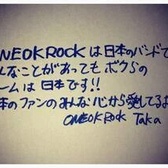 NEOKROCKは日本のバンドで
んなことがあってもボクらの
ームは日本です!!
本のファンのみんな心から愛してる
ONEOKROCK Taka